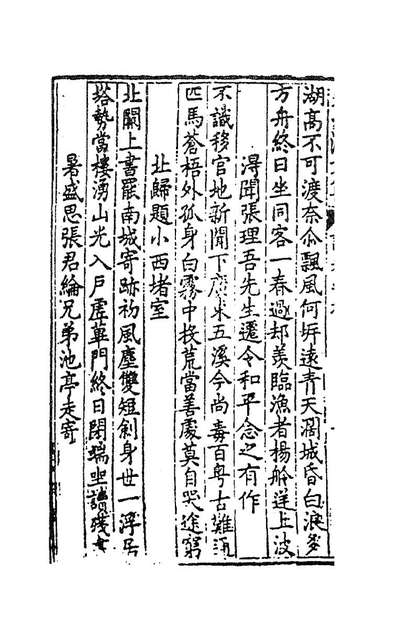 湖高不可渡奈尒飄風何圻遠青天濶城昏白浪多
方舟終日坐同客一春過却羡臨漁者楊舲逆上波
淂聞張理吾先生遷令和平念之有作
不識移官地新聞下廣東五溪今尚毒百粤古難通
匹馬蒼梧外孤身白霧中投荒當善處莫自哭途窮
北歸題小西堵室
北闕上書罷南城寄跡初風塵雙短劍身世一浮居
塔勢當樓湧山光入戶虛蓽門終日閉端坐讀殘書
暑盛思張君綸兄弟池亭走寄